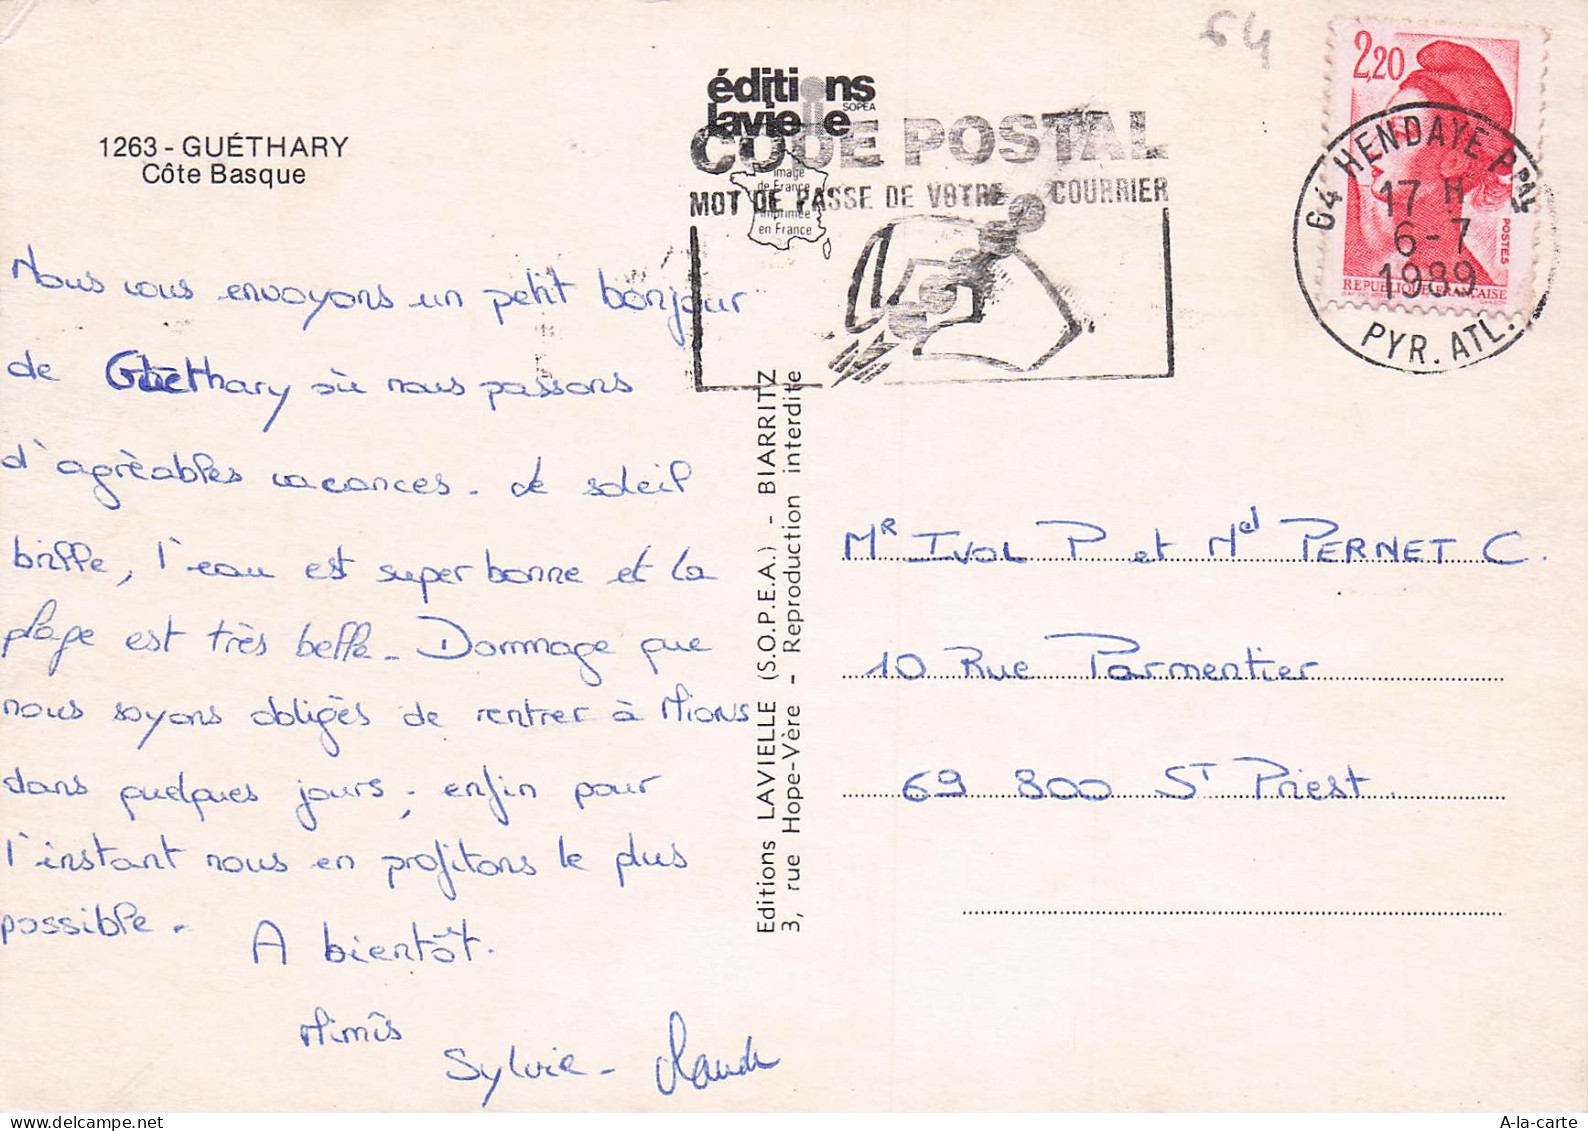 64
1263 - GUÉTHARY
Côte Basque
éditions
lavielle
SOPEA
image
de France
imprimée
en France
CODE POSTAL
MOT DE PASSE DE VOTRE COURRIER
2,20
POSTES
REPUBLIQUE FRANÇAISE
64 HENDAYE PPAL
17 H
6-7
1989
PYR. ATL.
Nous vous envoyons un petit bonjour
de Guethary où nous passons
d'agréables vacances. Le soleil
brille, l'eau est super bonne et la
plage est très belle. Dommage que
nous soyons obligés de rentrer à Mions
dans quelques jours, enfin pour
l'instant nous en profitons le plus
possible.
A bientôt.
Mimis
Sylvie - Claude
Editions LAVIELLE (S.O.P.E.A.) - BIARRITZ
3, rue Hope-Vère - Reproduction interdite
MR IVOL P et Mel PERNET C.
10 Rue Parmentier
69 800 ST Priest.
A-la-carte